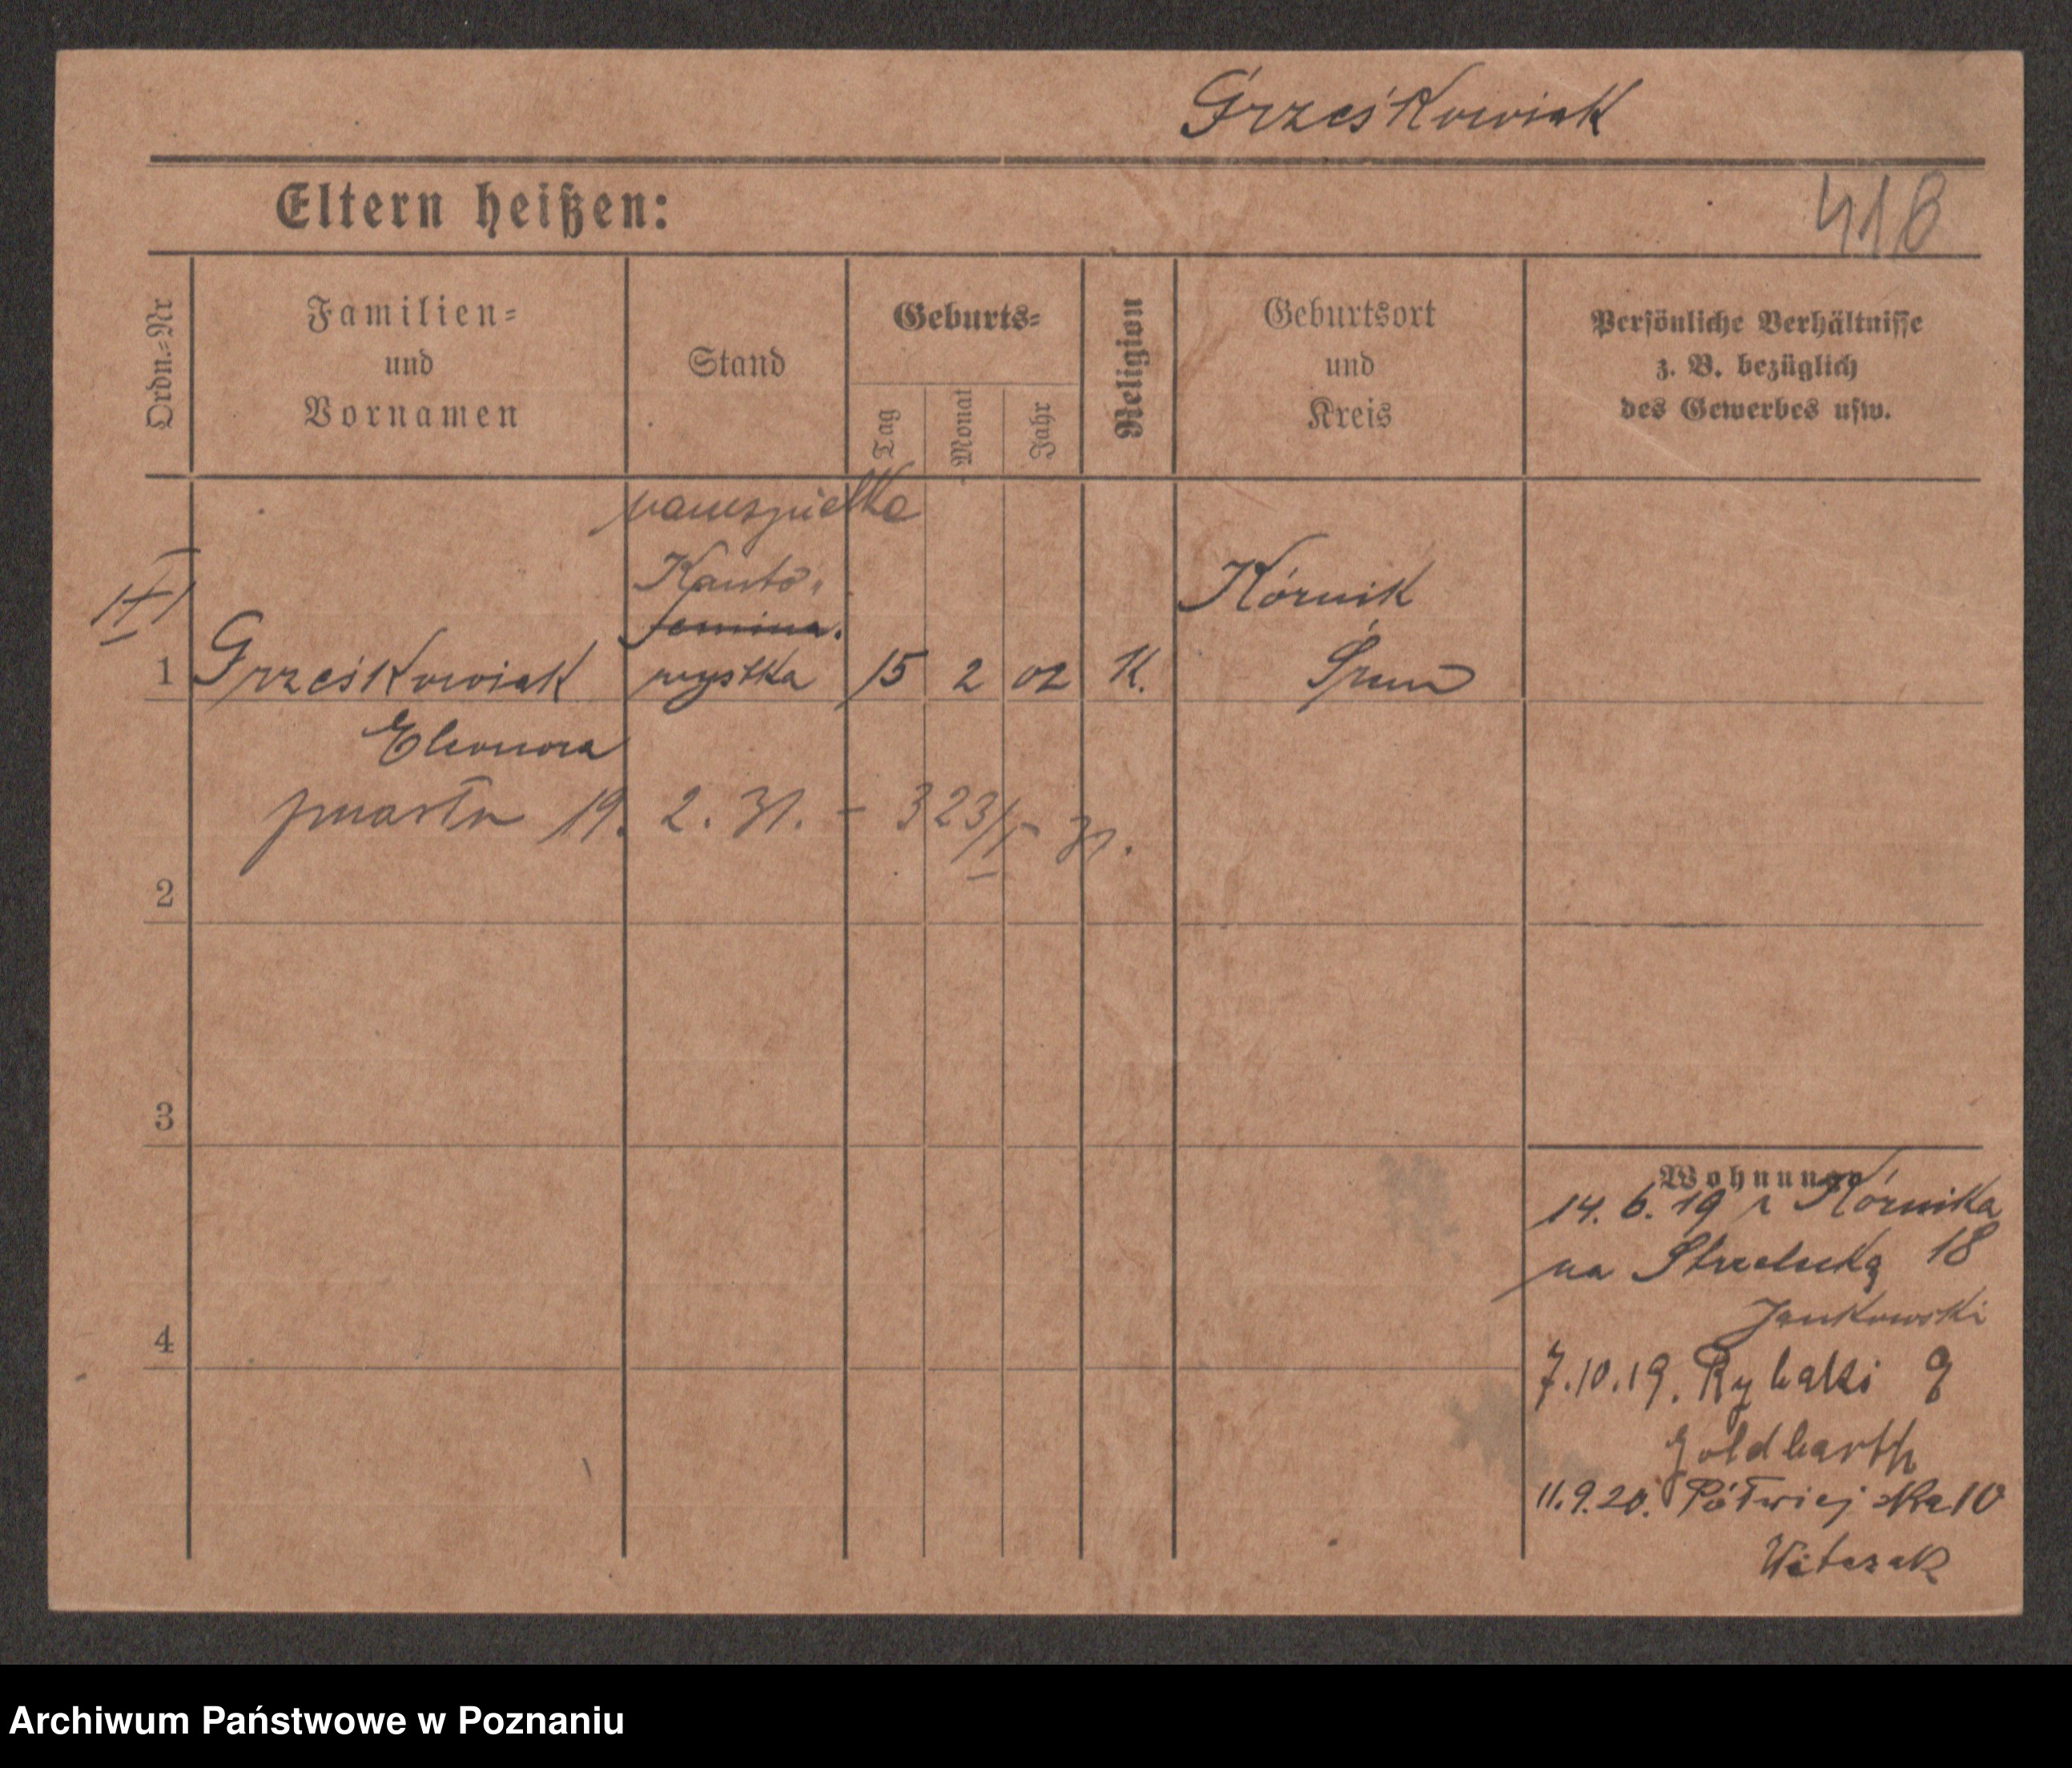 Grześkowiak
Eltern heißen:
418
Ordn.-Nr
Familien-
und
Vornamen
Stand
Geburts-
Tag
Monat
Jahr
Religion
Geburtsort
und
Kreis
Persönliche Verhältnisse
z. B. bezüglich
des Gewerbes usw.
Kanto-
Kórnik
1 Grześkowiak
rystka 15 2 02 K.
Śrem
Eleonora
zmarła 19. 2. 31.
2
3
4
Wohnung
14. 6. 19 z Kórnika
na Strzelecką 18
Jankowski
7.10.19. Rybaki 9
Goldbarth
11.9.20. Półwiejska 10
Witczak
Archiwum Państwowe w Poznaniu